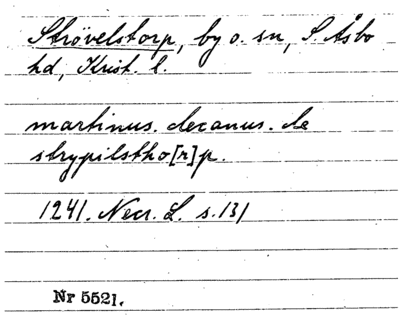 Strövelstorp, by o. sn, S. Åsbo
hd, Krist. l.
martinus. decanus. de
strypilstho[r]p.
1241. Necr. L. s. 131
Nr 5521.